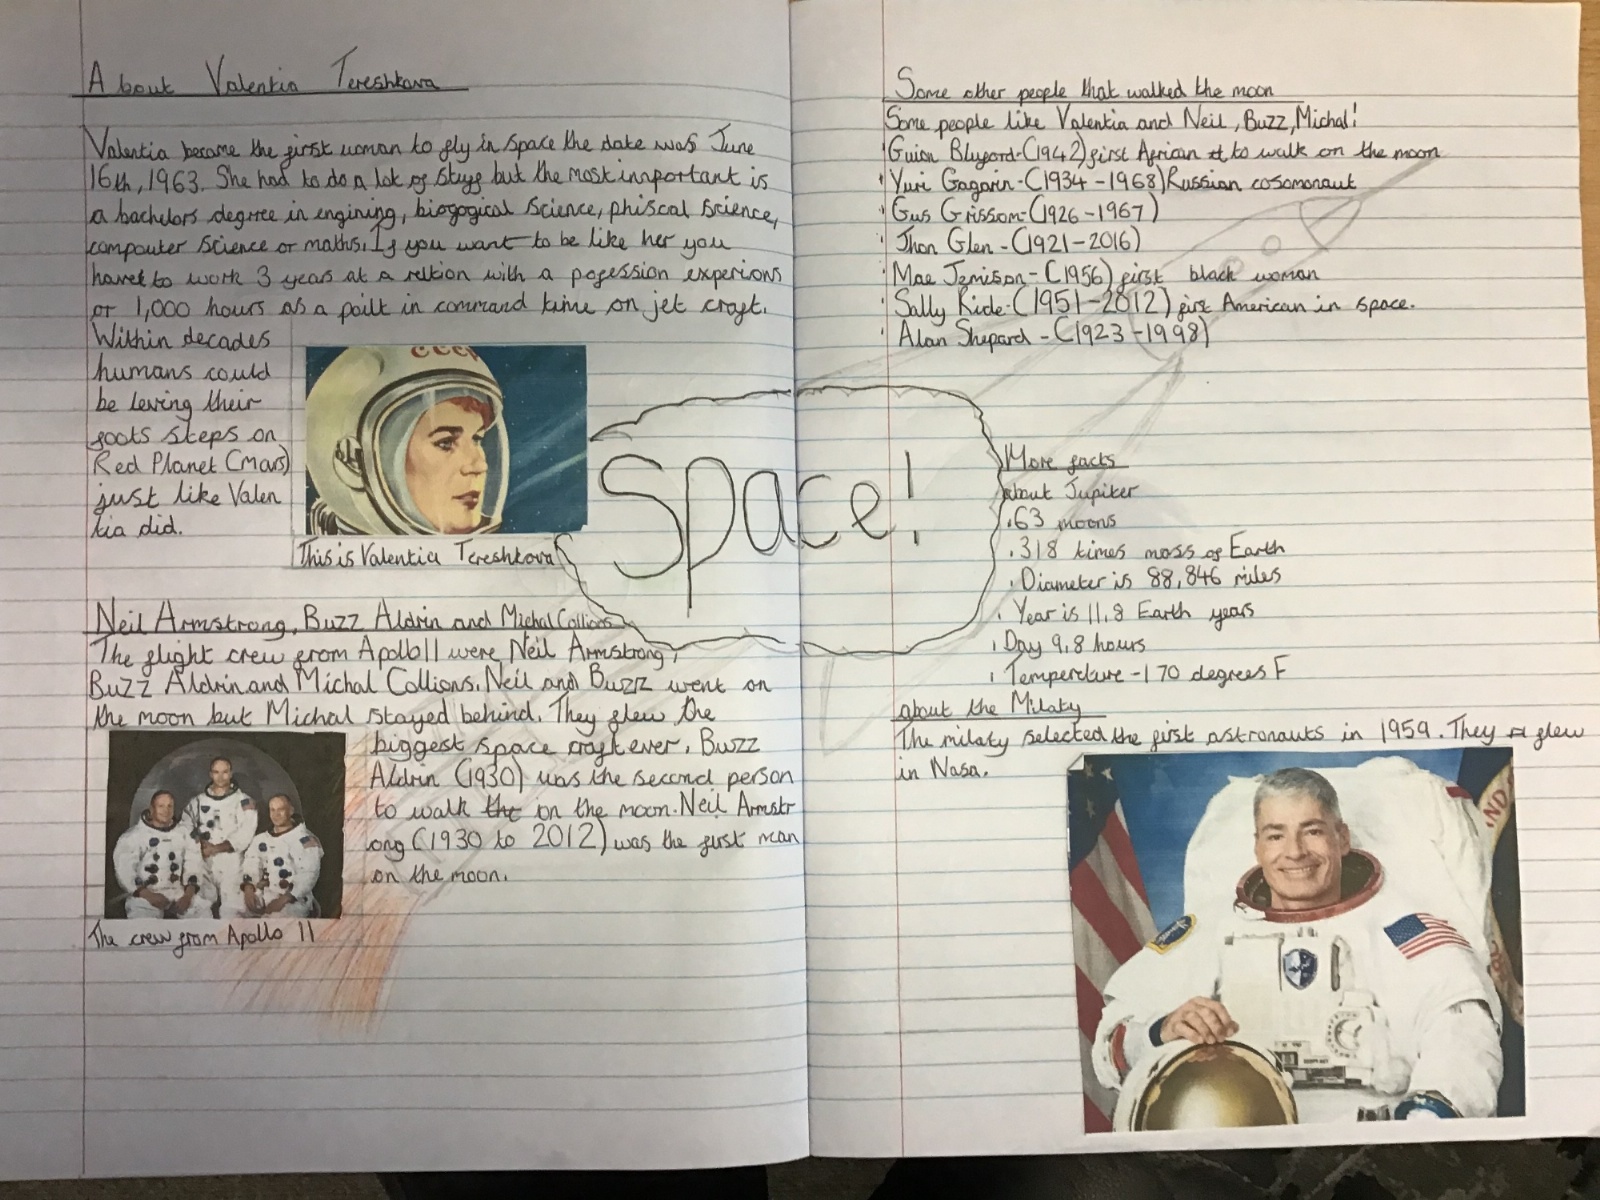 About Valentia Tereshkova
Valentia became the first woman to fly in space the date was June
16th, 1963. She had to do a lot of stuff but the most innportant is
a bachelors degree in engining, biogogical science, phiscal science,
compouter science or maths. If you want to be like her you
have to work 3 years at a reltion with a pofession experions
or 1,000 hours as a poilt in command time on jet craft.
Within decades
humans could
be leving their
foots steps on
Red Planet (Mars)
just like Valen
tia did.
CCCP
This is Valentia Tereshkova
Space!
Neil Armstrong, Buzz Aldrin and Michal Collions
The flight crew from Apollo 11 were Neil Armstrong,
Buzz Aldrin and Michal Collions. Neil and Buzz went on
the moon but Michal stayed behind. They flew the
biggest space craft ever. Buzz
Aldrin (1930) was the second person
to walk the on the moon. Neil Armstr
ong (1930 to 2012) was the furst man
on the moon.
The crew from Apollo 11
Some other people that walked the moon
Some people like Valentia and Neil, Buzz, Michal!
Guion Bluford-(1942) first African to walk on the moon
Yuri Gagarin-(1934-1968) Russian cosomonaut
Gus Grissom-(1926-1967)
Jhon Glen-(1921-2016)
Mae Jemison-(1956) first black woman
Sally Ride-(1951-2012) first American in space.
Alan Shepard-(1923-1998)
More facts
about Jupiter
.63 moons
.318 times mass of Earth
.Diameter is 88,846 miles
.Year is 11.8 Earth years
.Day 9.8 hours
.Temperture -170 degrees F
about the Milaty
The milaty selected the first astronauts in 1959. They flew
in Nasa.